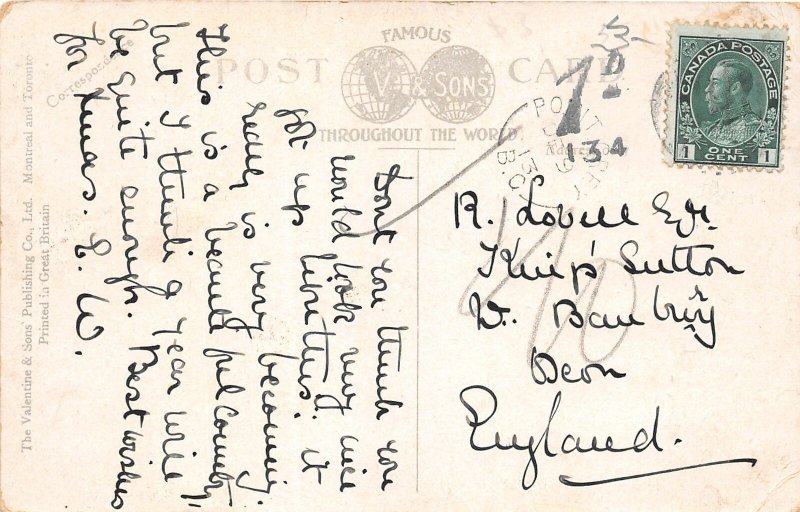 FAMOUS
POST CARD
V & SONS
THROUGHOUT THE WORLD.
Correspondence
The Valentine & Sons Publishing Co., Ltd. Montreal and Toronto
Printed in Great Britain
Dont you think you
would look very nice
got up like this. it
really is very becoming.
This is a beautiful country,
but I think a year will
be quite enough. Best wishes
for Xmas. L. W.
1D
134
B.C.
CANADA POSTAGE
1 ONE CENT 1
R. Lovell Esqr
King's Sutton
Nr. Banbury
Oxon
England.